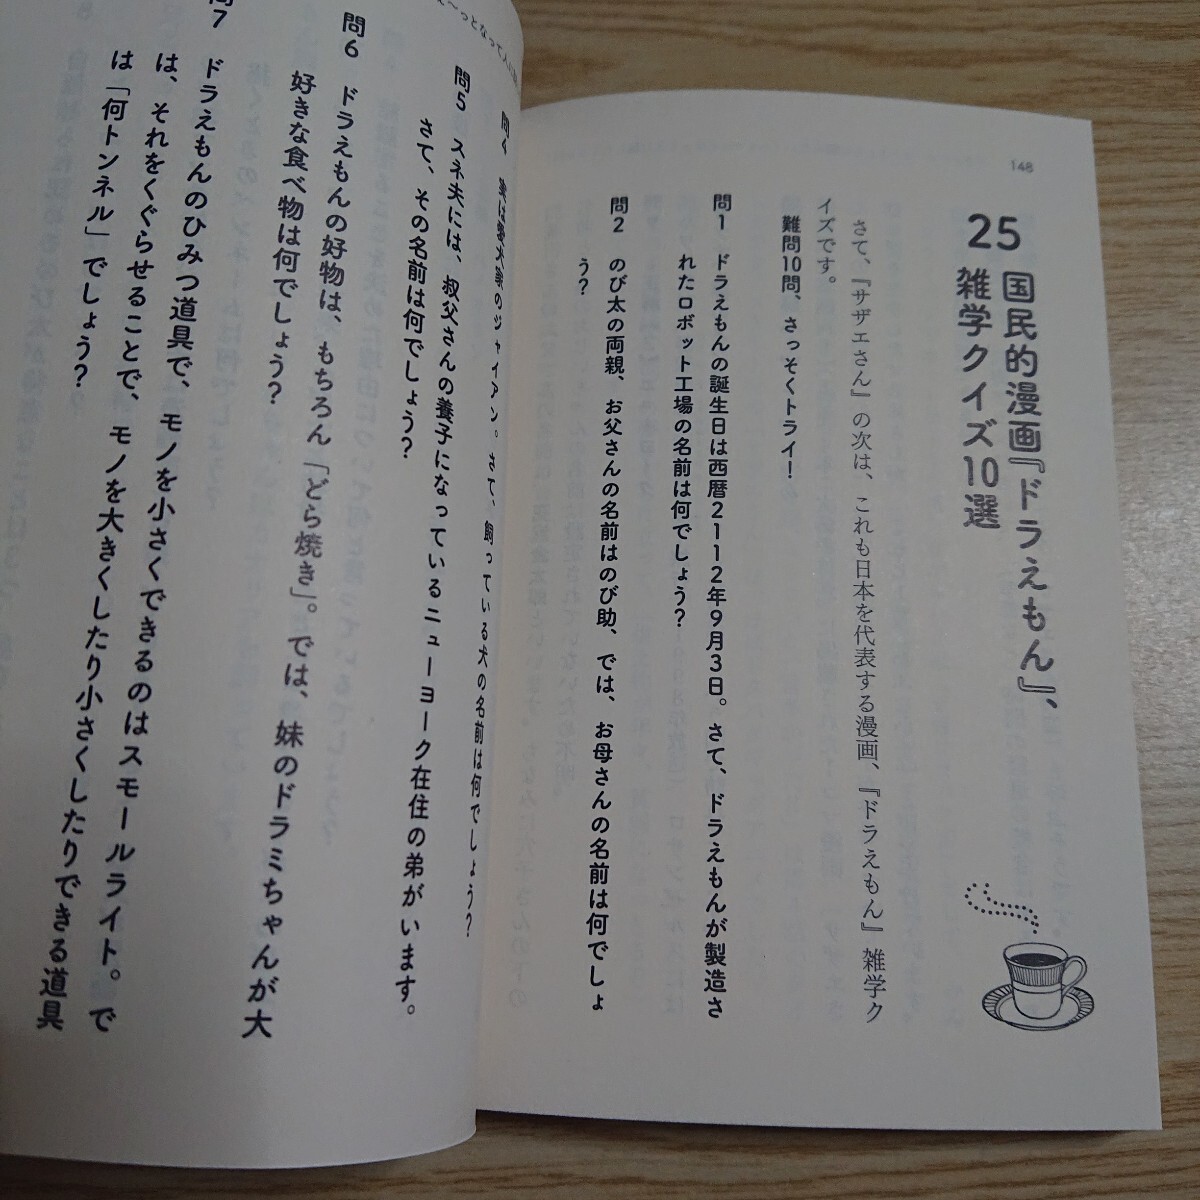 148
25 国民的漫画『ドラえもん』、
雑学クイズ10選
さて、『サザエさん』の次は、これも日本を代表する漫画、『ドラえもん』雑学ク
イズです。
難問10問、さっそくトライ！
問1 ドラえもんの誕生日は西暦2112年9月3日。さて、ドラえもんが製造さ
れたロボット工場の名前は何でしょう？
問2 のび太の両親、お父さんの名前はのび助、では、お母さんの名前は何でしょ
う？
問4 実は愛犬家のジャイアン。さて、飼っている犬の名前は何でしょう？
問5 スネ夫には、叔父さんの養子になっているニューヨーク在住の弟がいます。
さて、その名前は何でしょう？
問6 ドラえもんの好物は、もちろん「どら焼き」。では、妹のドラミちゃんが大
好きな食べ物は何でしょう？
問7 ドラえもんのひみつ道具で、モノを小さくできるのはスモールライト。で
は、それをくぐらせることで、モノを大きくしたり小さくしたりできる道具
は「何トンネル」でしょう？